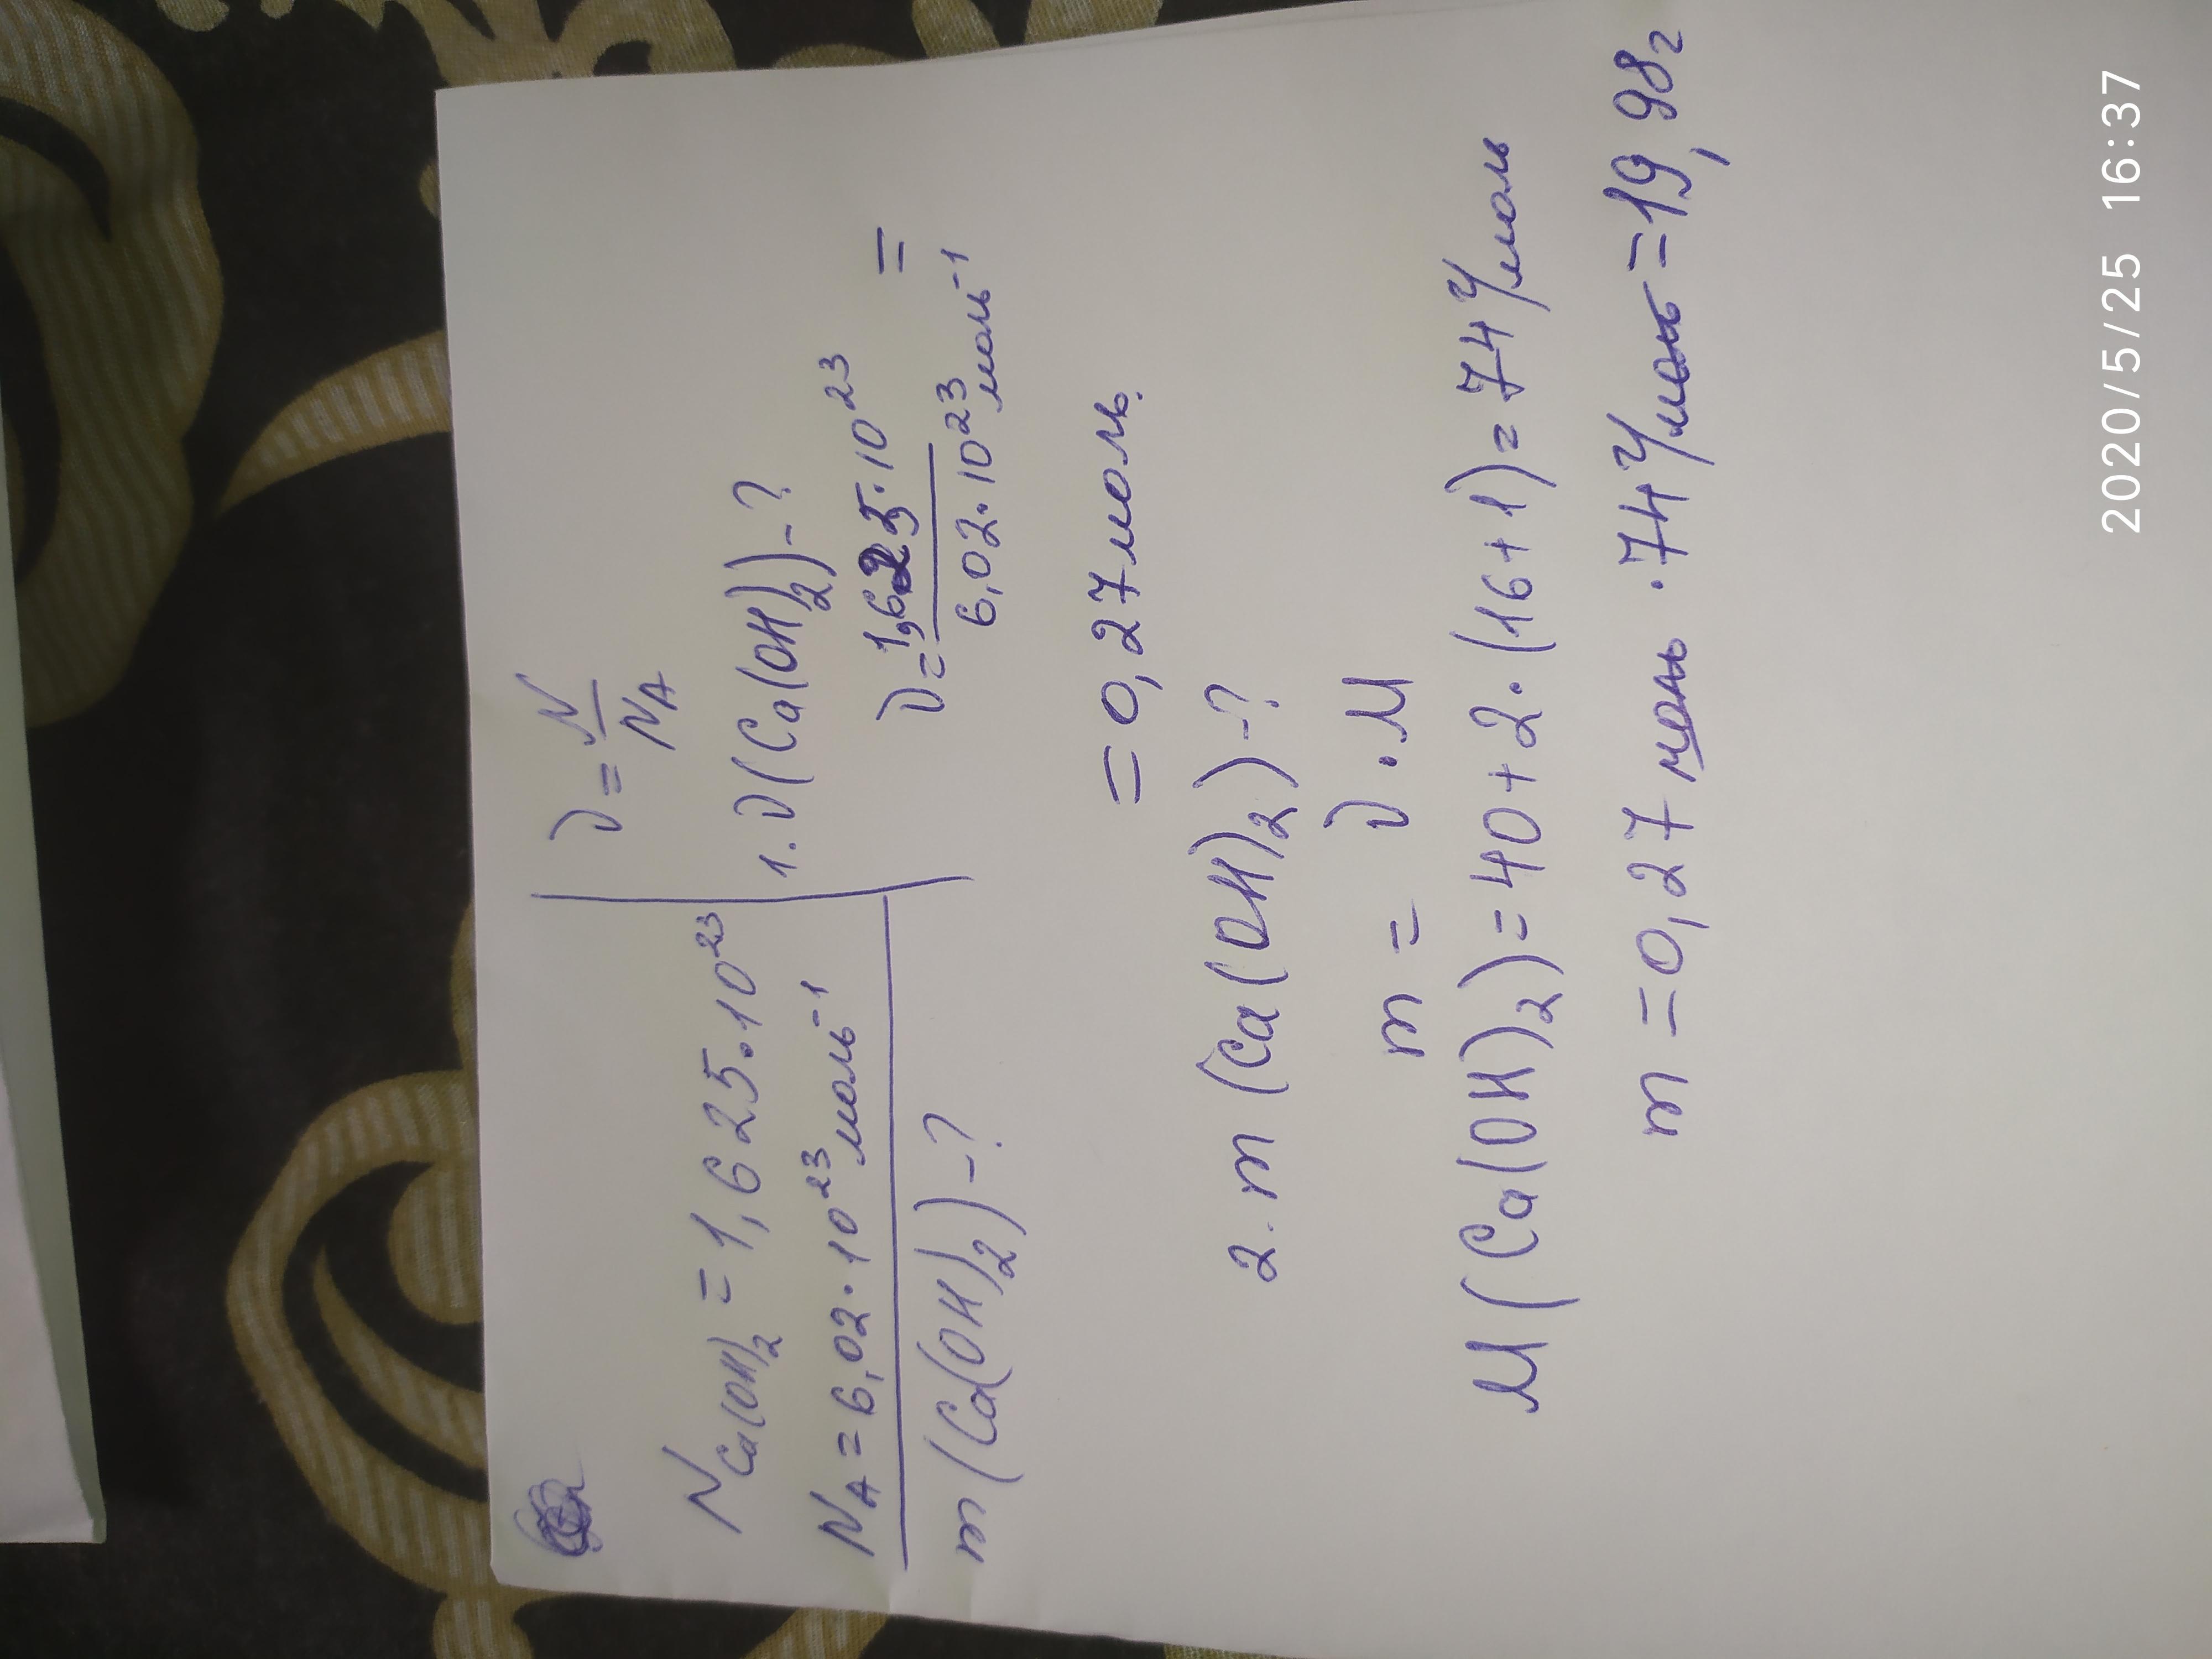 N Ca(OH)₂ = 1,625·10²³
N_A = 6,02·10²³ моль⁻¹
m(Ca(OH)₂)-?
ν = N/N_A
1. ν(Ca(OH)₂)-?
ν = 1,625·10²³ / 6,02·10²³ моль⁻¹ =
= 0,27 моль.
2. m(Ca(OH)₂)-?
m = ν·M
M(Ca(OH)₂) = 40+2·(16+1) = 74 г/моль
m = 0,27 моль ·74 г/моль = 19,98 г
2020/5/25 16:37